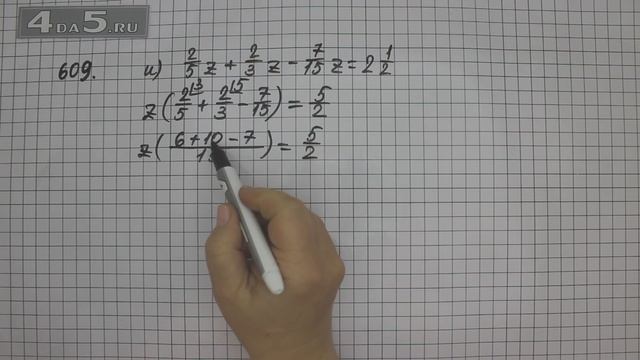 4DA5.RU
609. и) 2/5 z + 2/3 z - 7/15 z = 2 1/2
z ( 2⌊3/5 + 2⌊5/3 - 7/15 ) = 5/2
z ( 6 + 10 - 7 / 15 ) = 5/2